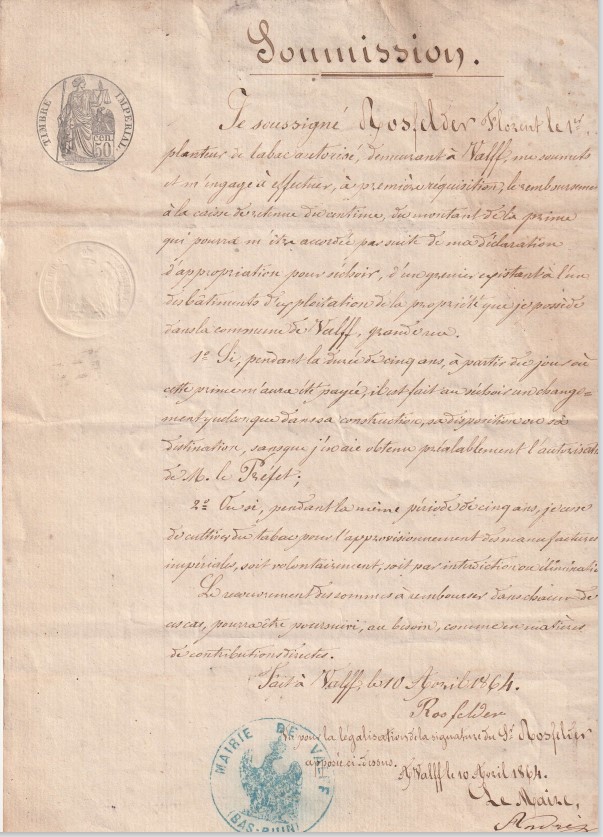 Soumission.
TIMBRE IMPERIAL.
50 cen
Je soussigné Rosfelder Florent le 1er,
planteur de tabac autorisé, demeurant à Valff, me soumets
et m'engage à effectuer, à première réquisition, le remboursemen
à la caisse de retenue du centime, du montant de la prime
qui pourra m'être accordée par suite de ma déclaration
d'appropriation pour séchoir, d'un grenier existant à l'un
des bâtiments d'exploitation de la propriété que je possède
dans la commune de Valff, grande rue.
1º Si, pendant la durée de cinq ans, à partir du jour où
cette prime m'aura été payée, il est fait au séchoir un change-
ment quelconque dans sa construction, sa disposition ou sa
destination, sans que j'en aie obtenu préalablement l'autorisati
de M. le Préfet;
2º Ou si, pendant la même période de cinq ans, je cesse
de cultiver du tabac pour l'approvisionnement des manufactures
impériales, soit volontairement, soit par interdiction ou élimination
Le recouvrement des sommes à rembourser dans chacun de
ces cas, pourra être poursuivi, au besoin, comme en matières
de contributions directes.
Fait à Valff, le 10 Avril 1864.
Rosfelder
Vu pour la légalisation de la signature du Sr. Rosfelder
apposée ci-dessus.
A Valff le 10 Avril 1864.
Le Maire,
André
MAIRIE DE VALFF
(BAS-RHIN)